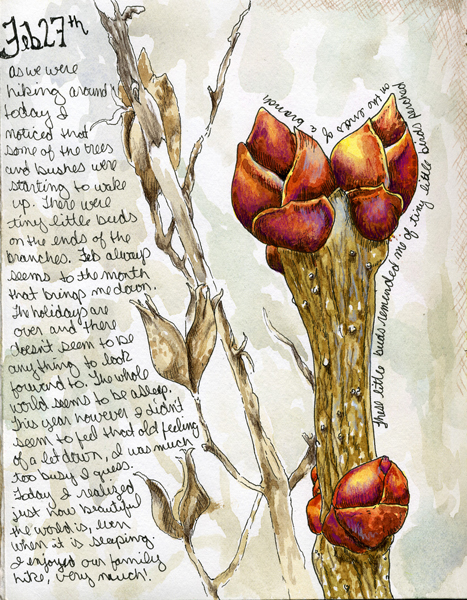 Feb 27th
as we were
hiking around
today I
noticed that
some of the trees
and bushes were
starting to wake
up. There were
tiny little buds
on the ends of the
branches. Feb always
seems to the month
that brings me down.
The holidays are
over and there
doesn't seem to be
anything to look
forward to. The whole
world seems to be asleep.
This year however I didn't
seem to feel that old feeling
of a let down, I was much
too busy I guess.
Today I realized
just how beautiful
the world is, even
when it is sleeping
I enjoyed our family
hike, very much!
These little buds reminded me of tiny little birds
on the ends of a branch